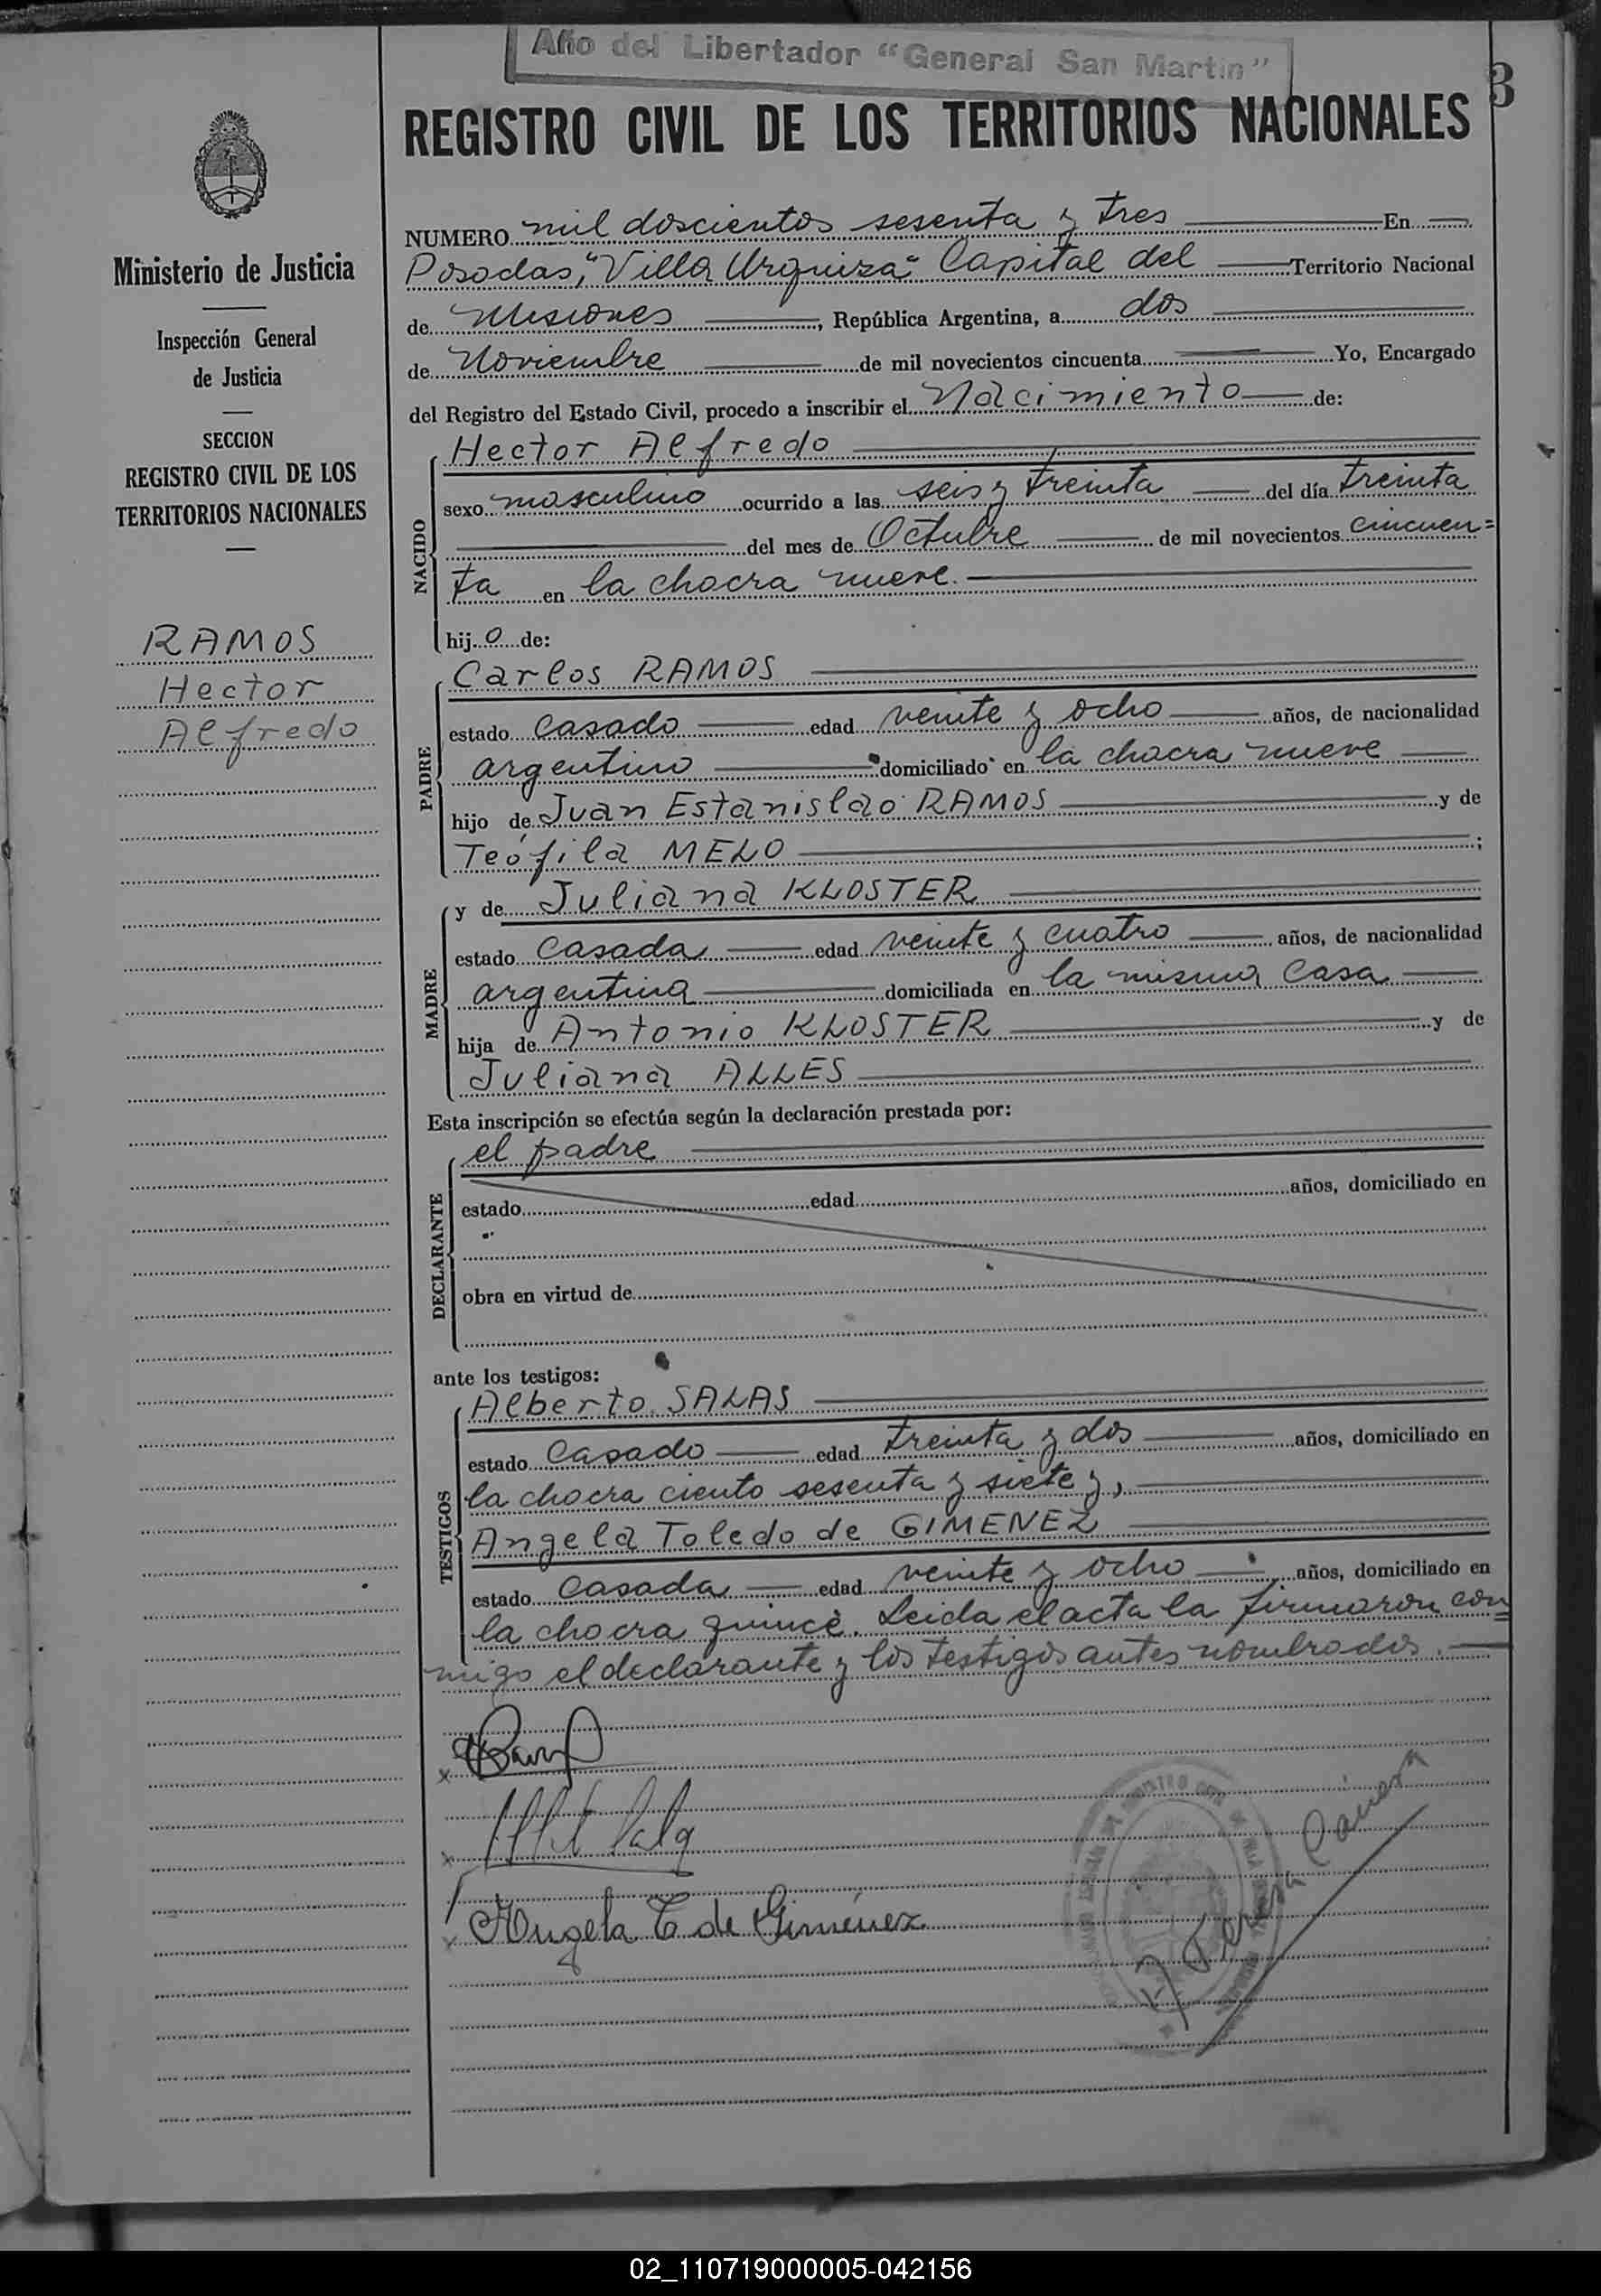 Año del Libertador “General San Martín”
3
REGISTRO CIVIL DE LOS TERRITORIOS NACIONALES
Ministerio de Justicia
Inspección General
de Justicia
SECCION
REGISTRO CIVIL DE LOS
TERRITORIOS NACIONALES
RAMOS
Hector
Alfredo
NUMERO mil doscientos sesenta y tres En
Posadas, "Villa Urquiza" Capital del Territorio Nacional
de Misiones, República Argentina, a dos
de Noviembre de mil novecientos cincuenta Yo, Encargado
del Registro del Estado Civil, procedo a inscribir el Nacimiento de:
NACIDO
Hector Alfredo
sexo masculino ocurrido a las seis y treinta del día treinta
del mes de Octubre de mil novecientos cincuen=
ta en la chacra nueve.
hijo de:
PADRE
Carlos RAMOS
estado casado edad veinte y ocho años, de nacionalidad
argentino domiciliado en la chacra nueve
hijo de Juan Estanislao RAMOS y de
Teófila MELO;
MADRE
y de Juliana KLOSTER
estado casada edad veinte y cuatro años, de nacionalidad
argentina domiciliada en la misma casa
hija de Antonio KLOSTER y de
Juliana ALLES
Esta inscripción se efectúa según la declaración prestada por:
DECLARANTE
el padre
estado edad años, domiciliado en
obra en virtud de
ante los testigos:
TESTIGOS
Alberto SALAS
estado casado edad treinta y dos años, domiciliado en
la chacra ciento sesenta y siete y,
Angela Toledo de GIMENEZ
estado casada edad veinte y ocho años, domiciliado en
la chacra quince. Leida el acta la firmaron con=
migo el declarante y los testigos antes nombrados.
Angela T. de Giménez
02_110719000005-042156